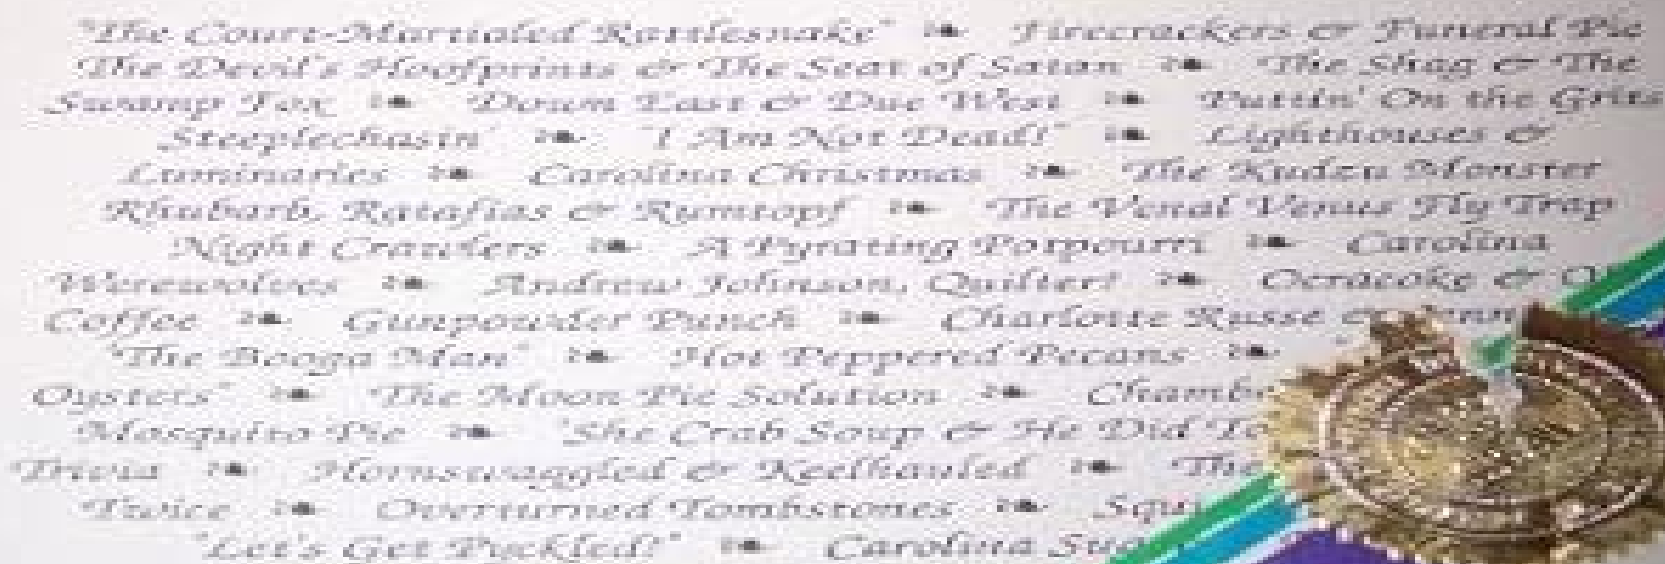 "The Court-Martialed Rattlesnake" ❧ Firecrackers & Funeral Pie
The Devil's Hoofprints & The Seat of Satan ❧ The Shag & The
Swamp Fox ❧ Down East & Due West ❧ Puttin' On the Grits
Steeplechasin' ❧ "I Am Not Dead!" ❧ Lighthouses &
Luminaries ❧ Carolina Christmas ❧ The Kudzu Monster
Rhubarb, Ratafias & Rumtopf ❧ The Venal Venus Fly Trap
Night Crawlers ❧ A Pyrating Potpourri ❧ Carolina
Werewolves ❧ Andrew Johnson, Quilter! ❧ Ocracoke &
Coffee ❧ Gunpowder Punch ❧ Charlotte Russe
"The Booga Man" ❧ Hot Peppered Pecans ❧
Oysters" ❧ The Moon Pie Solution ❧
Mosquito Pie ❧ She Crab Soup & He Did
Trivia ❧ Hornswaggled & Keelhauled ❧ The
Twice ❧ Overturned Tombstones ❧
"Let's Get Pyckled!" ❧ Carolina